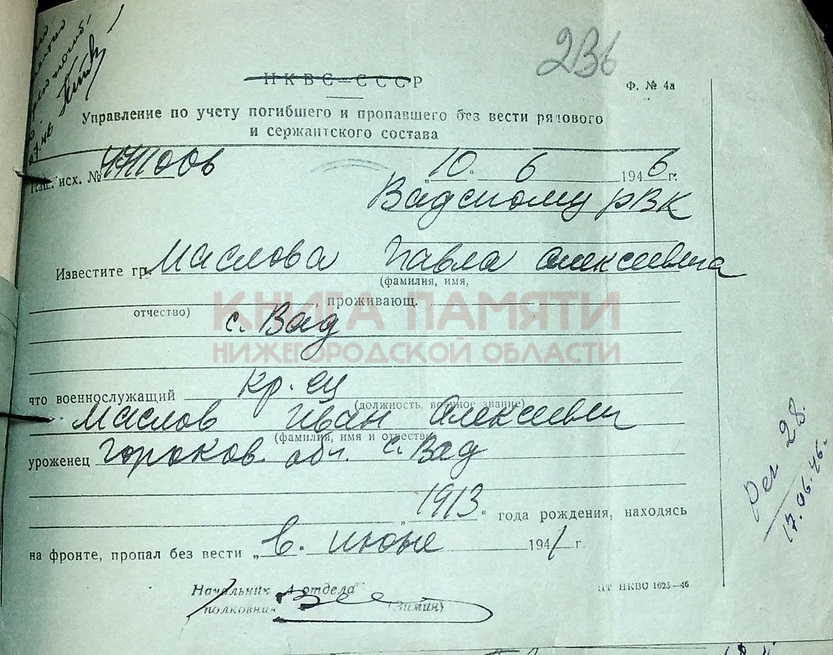 236
НКВС-СССР
Ф. № 4а
Управление по учету погибшего и пропавшего без вести рядового
и сержантского состава
исх. №
„10. 6 1946г.
Вадскому РВК
Известите гр. Маслова Павла Алексеевича
(фамилия, имя,
, проживающ.
отчество)
с. Вад
КНИГА ПАМЯТИ
НИЖЕГОРОДСКОЙ ОБЛАСТИ
что военнослужащий кр-ец
(должность, военное звание)
Маслов Иван Алексеевич
(фамилия, имя и отчество)
уроженец Горьков. обл. с. Вад
„1913“ года рождения, находясь
на фронте, пропал без вести „в. июне 1941 г.
Начальник 4 отдела
полковник (Зимин)
ЦТ НКВС 1625—46
Рег 28.
17.06.46.